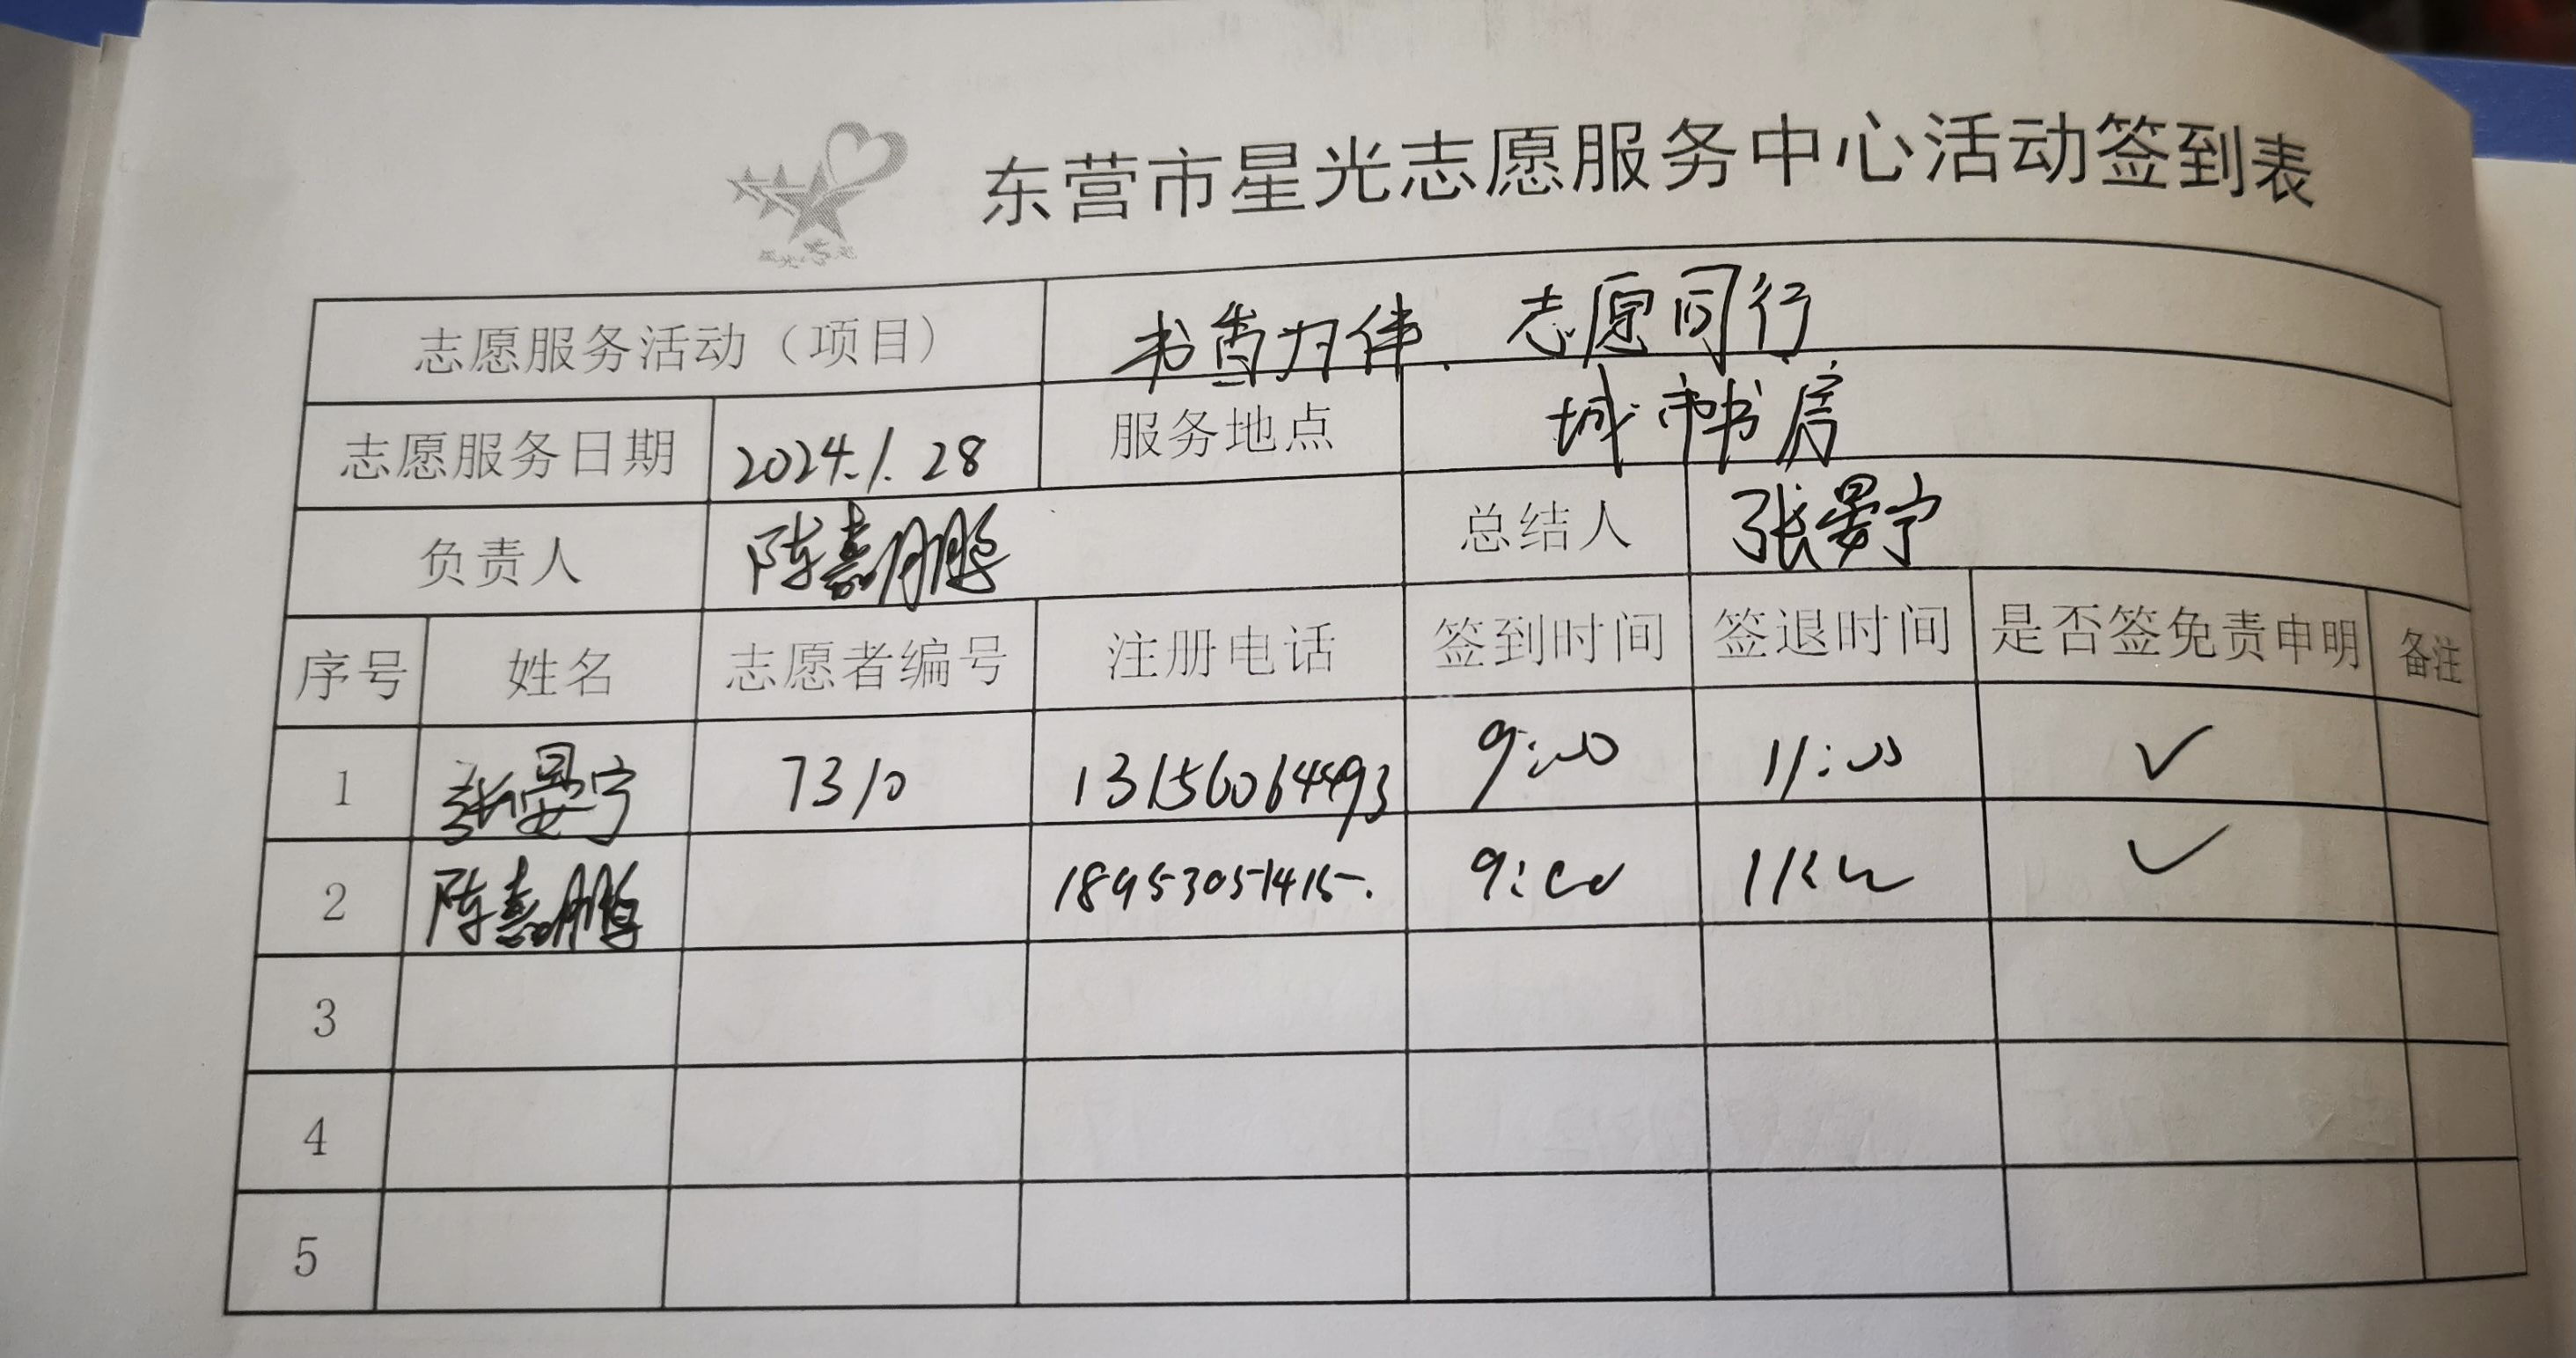 东营市星光志愿服务中心活动签到表
志愿服务活动（项目） 书香为伴 志愿同行
志愿服务日期 2024.1.28 服务地点 城市书房
负责人 陈嘉鹏 总结人 张晏宁
序号 姓名 志愿者编号 注册电话 签到时间 签退时间 是否签免责申明 备注
1 张晏宁 7310 13156064493 9:00 11:00 ✓
2 陈嘉鹏 18953051415 9:00 11:00 ✓
3
4
5